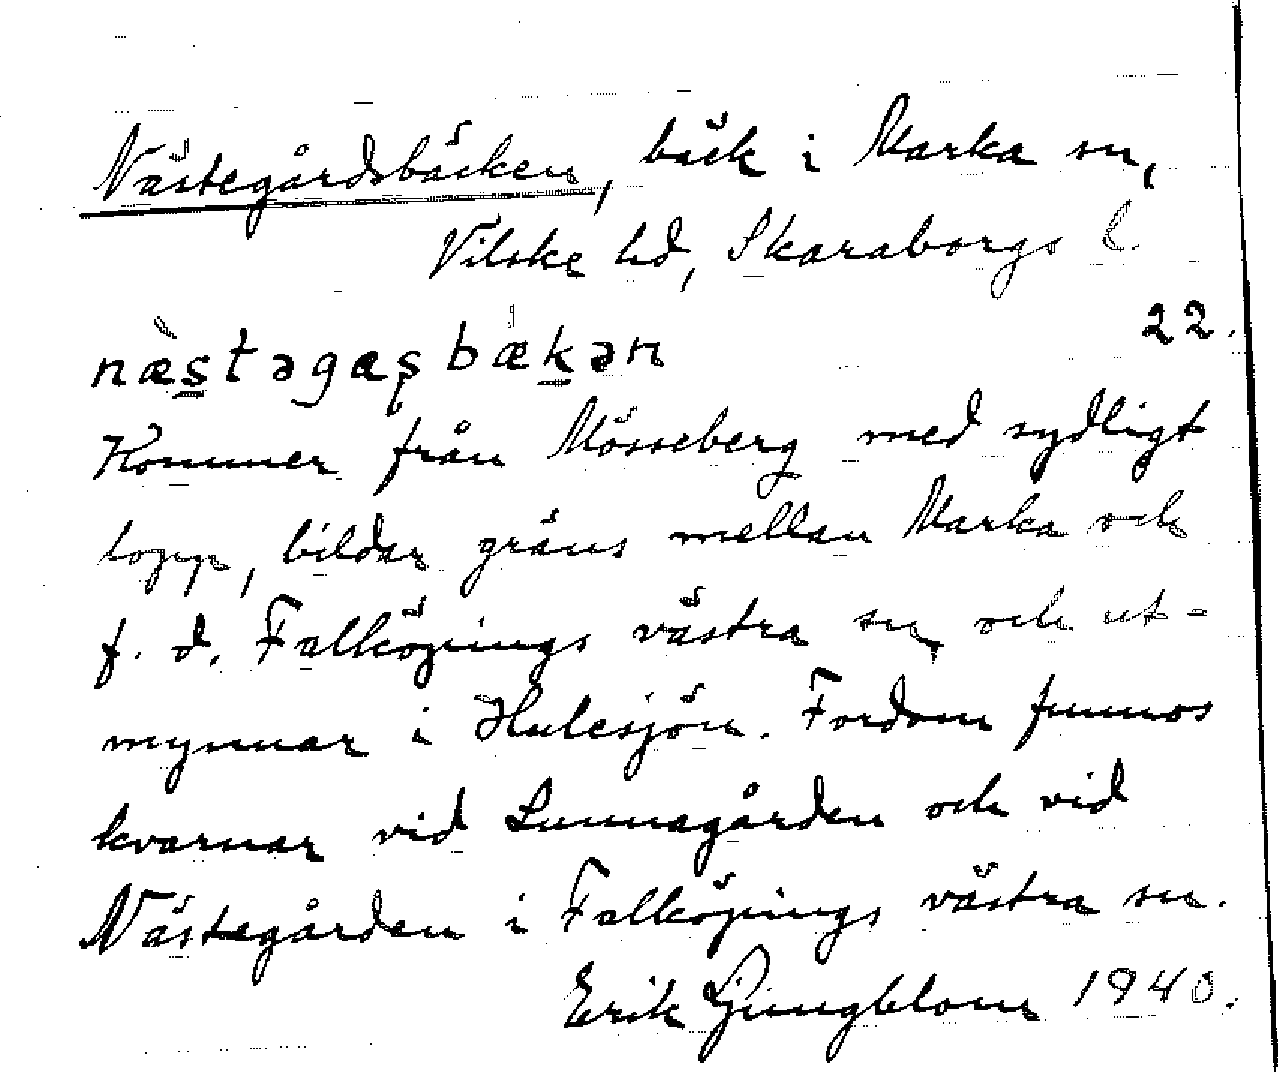 Nästegårdsbäcken, bäck i Marka sn,
Vilske hd, Skaraborgs l.
22.
næ̀stəgæşbækən
Kommer från Mösseberg med sydligt
lopp, bildar gräns mellan Marka och
f. d. Falköpings västra sn, och ut-
mynnar i Hulesjön. Fordom funnos
kvarnar vid Lunnagården och vid
Nästegården i Falköpings västra sn.
Erik Ljungblom 1940.